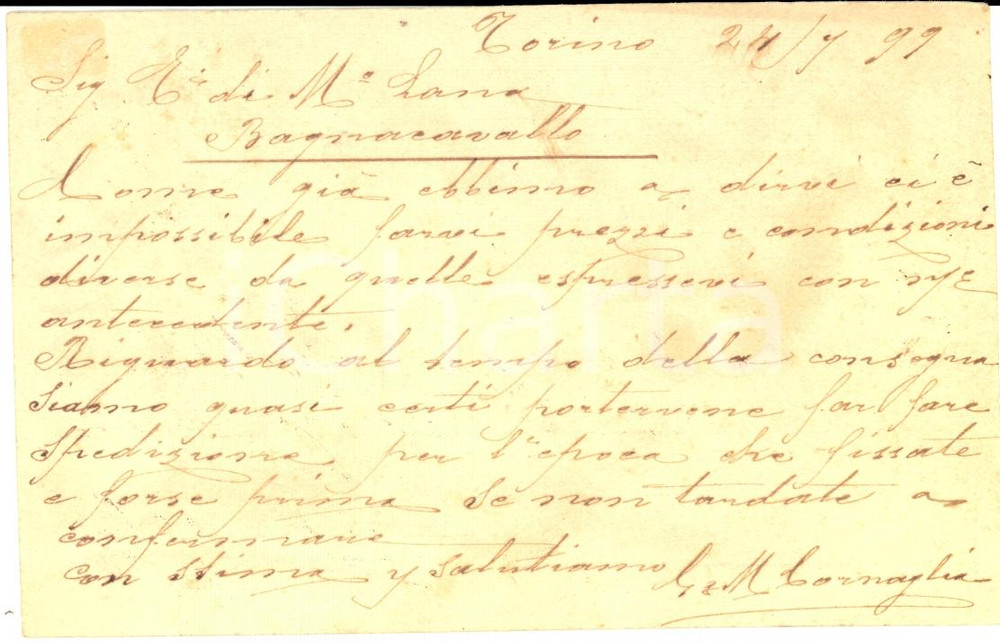 Torino 24/7 99
Sig di M.a Lana
Bagnacavallo
Come già ebbimo a dirvi ci è
impossibile farvi prezzi e condizioni
diverse da quelle espressevi con
antecedente.
Riguardo al tempo della consegna
siamo quasi certi portervene far fare
spedizione per l'epoca che fissate
e forse prima se non tardate a
confermare
con stima salutiamo
M Cornaglia
iCharta